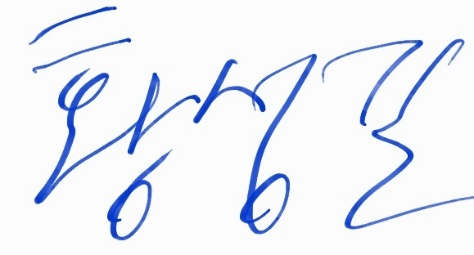 황성길